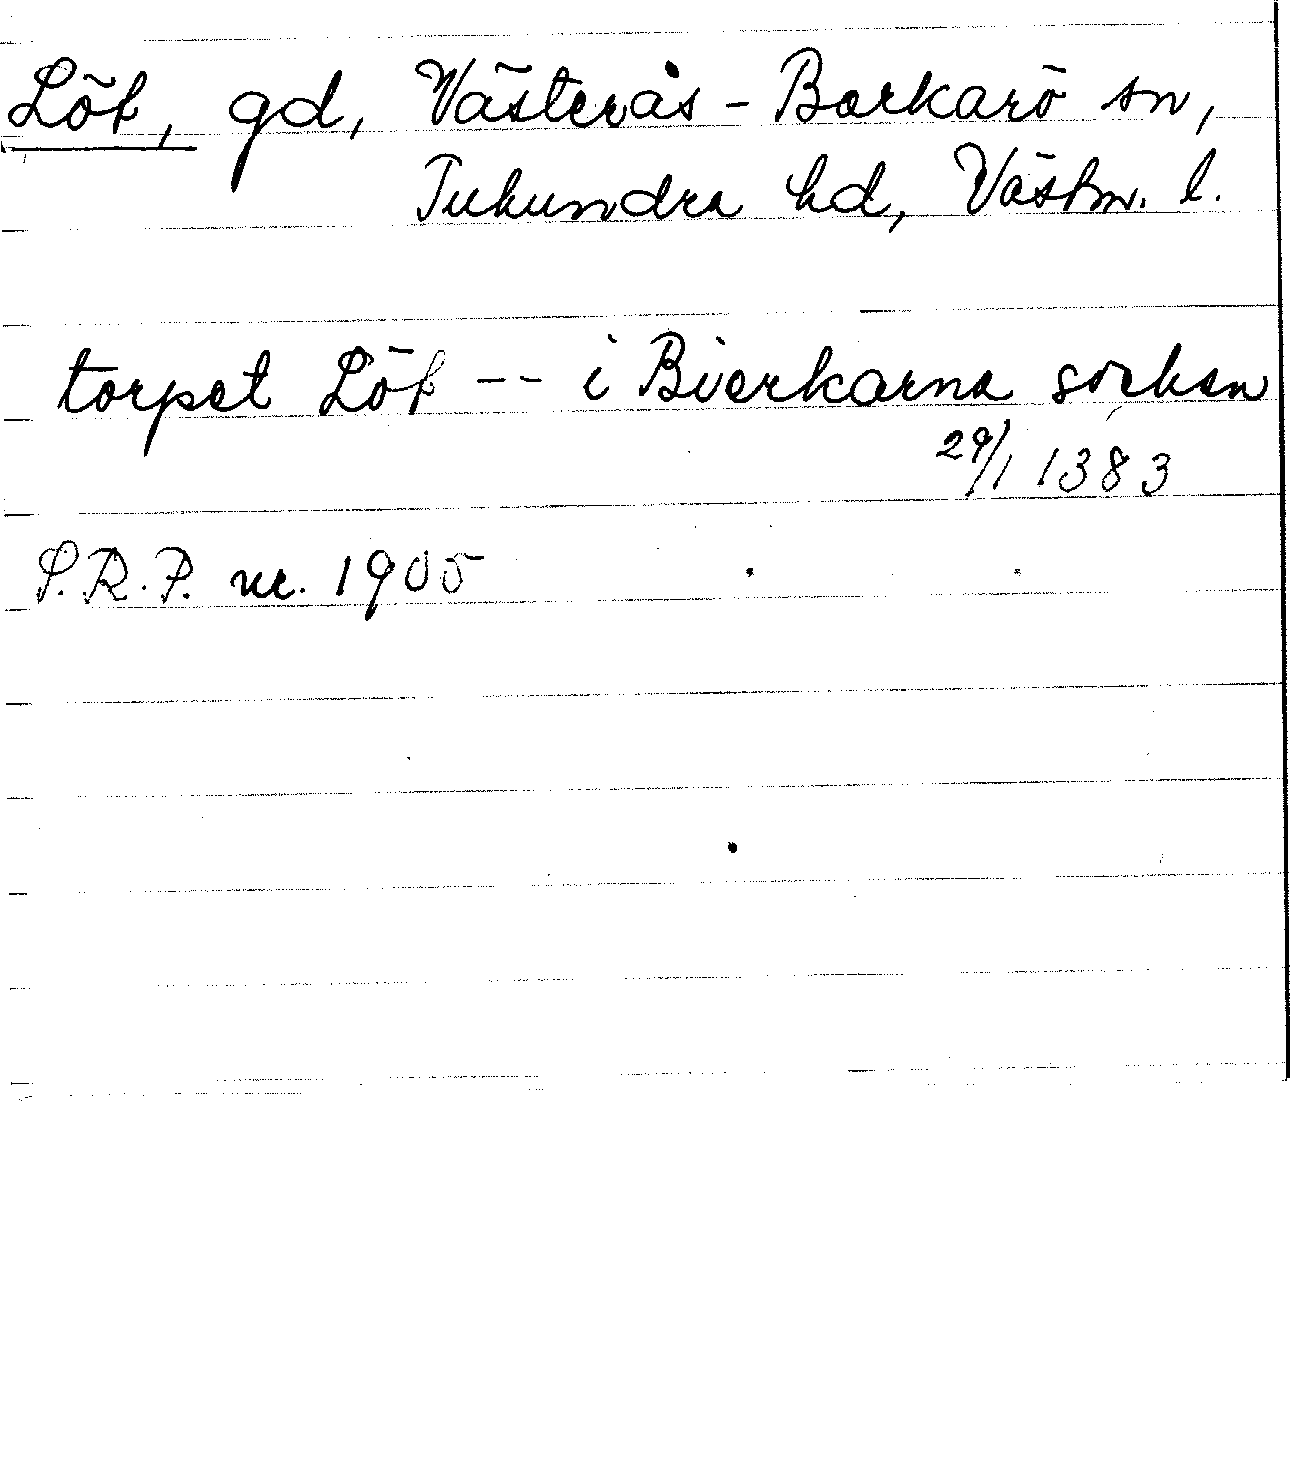 Löt, gd, Västerås-Barkarö sn,
Tuhundra hd, Västm. l.
torpet Löt -- i Bierkarna sochen
29/1 1383
S.R.P. nr. 1905